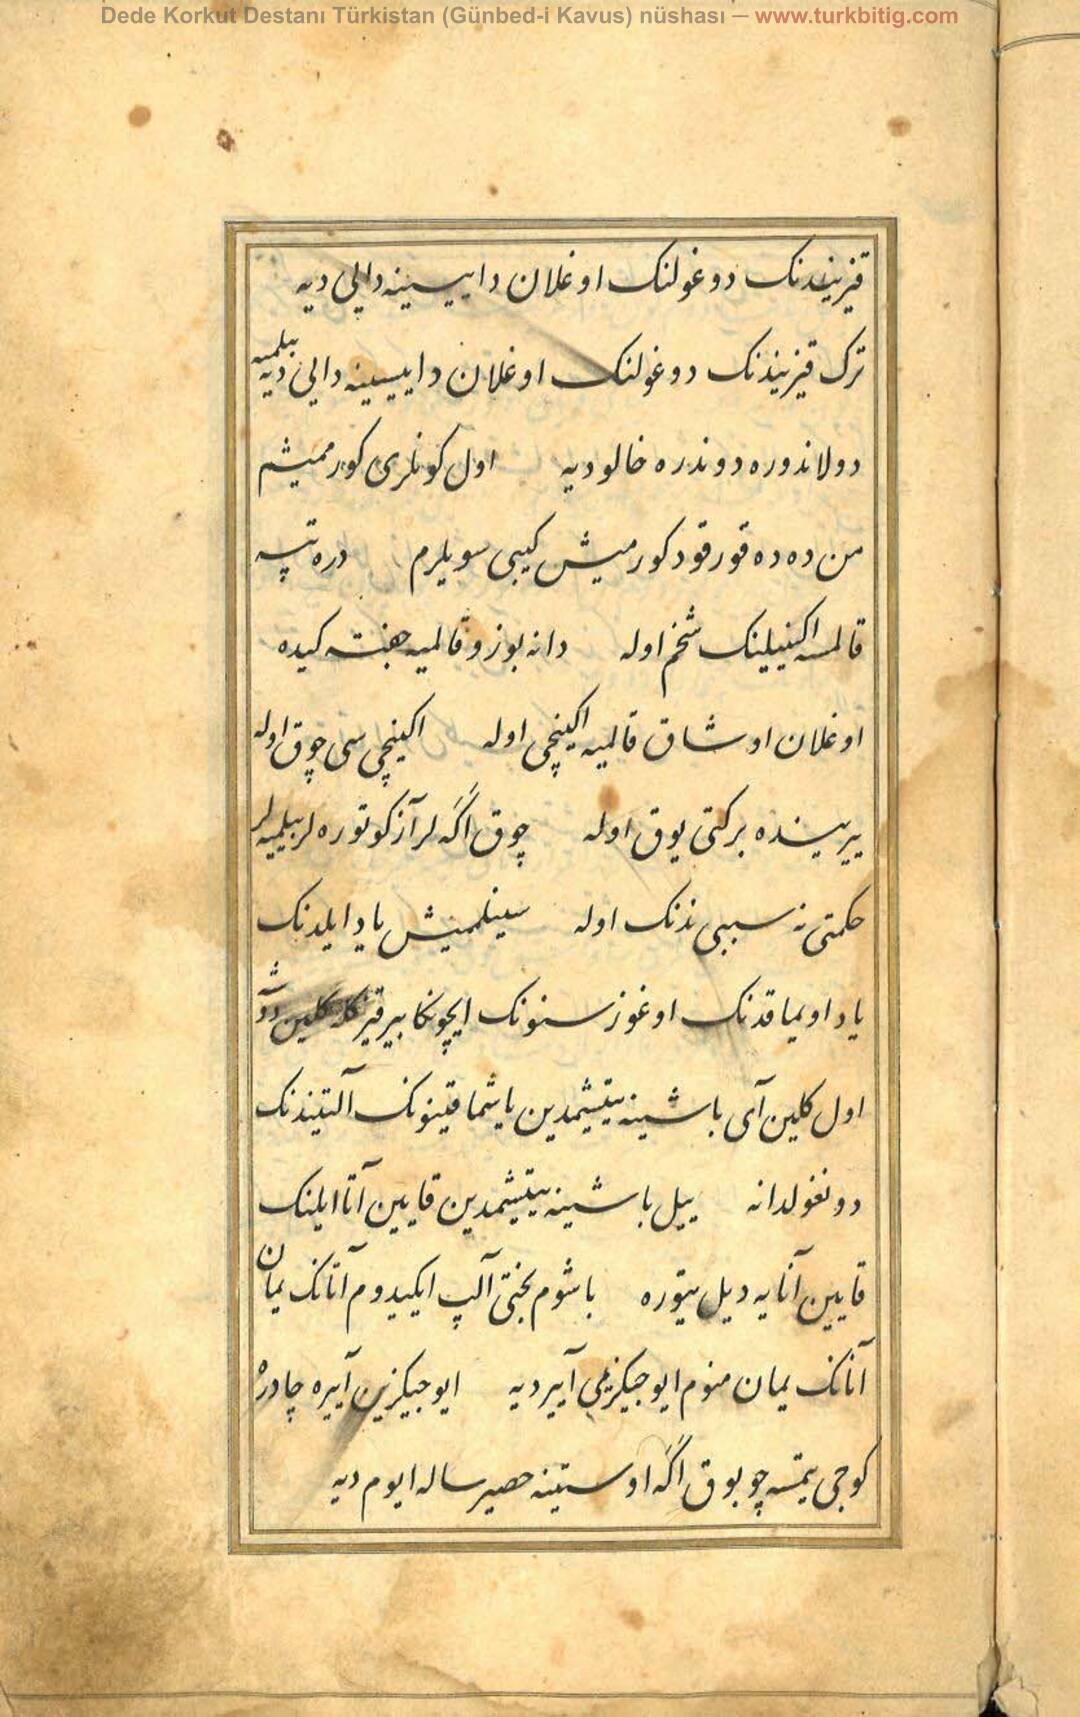 Dede Korkut Destanı Türkistan (Günbed-i Kavus) nüshası — www.turkbitig.com
قیزیندنک دوغولنک اوغلان داییسینه دالی دیه
ترک قیزیندنک دوغولنک اوغلان داییسینه دالی دیه بیلمیه
دولاندوره دوندره خالو دیه اول کونلری کورممیشم
من ده ده قورقود کورمیش کیبی سویلرم دره تپه
قالمسه اکنیلینک شخم اوله دانه بوزو قالمیه جفته کیده
اوغلان اوشاق قالمیه اکینچی اوله اکینچی سی چوق اوله
ییرینده برکتی یوق اوله چوق اگه لر آز کوتوره لر بیلمیه لر
حکمتی نه سببی ندنک اوله سینلمنیش یاد ایلدنک
یاد اویماقدنک اوغوز سنونک ایچونکا بیر قیز کلین دوشه
اول کلین آی باشینه ییتیشمدین یاشماقینونک آلتیندنک
دونغولدانه ییل باشینه ییتیشمدین قایین آتا ایلنک
قایین آنایه دیل ییتوره باشوم بختی آلپ ایکیدوم آتانک یمان
آنانک یمان منوم ایوجیکزیمی آییر دیه ایوجیکزین آییره چادره
کوجی یتمسه چوبوق اگه اوستینه حصیر ساله ایوم دیه